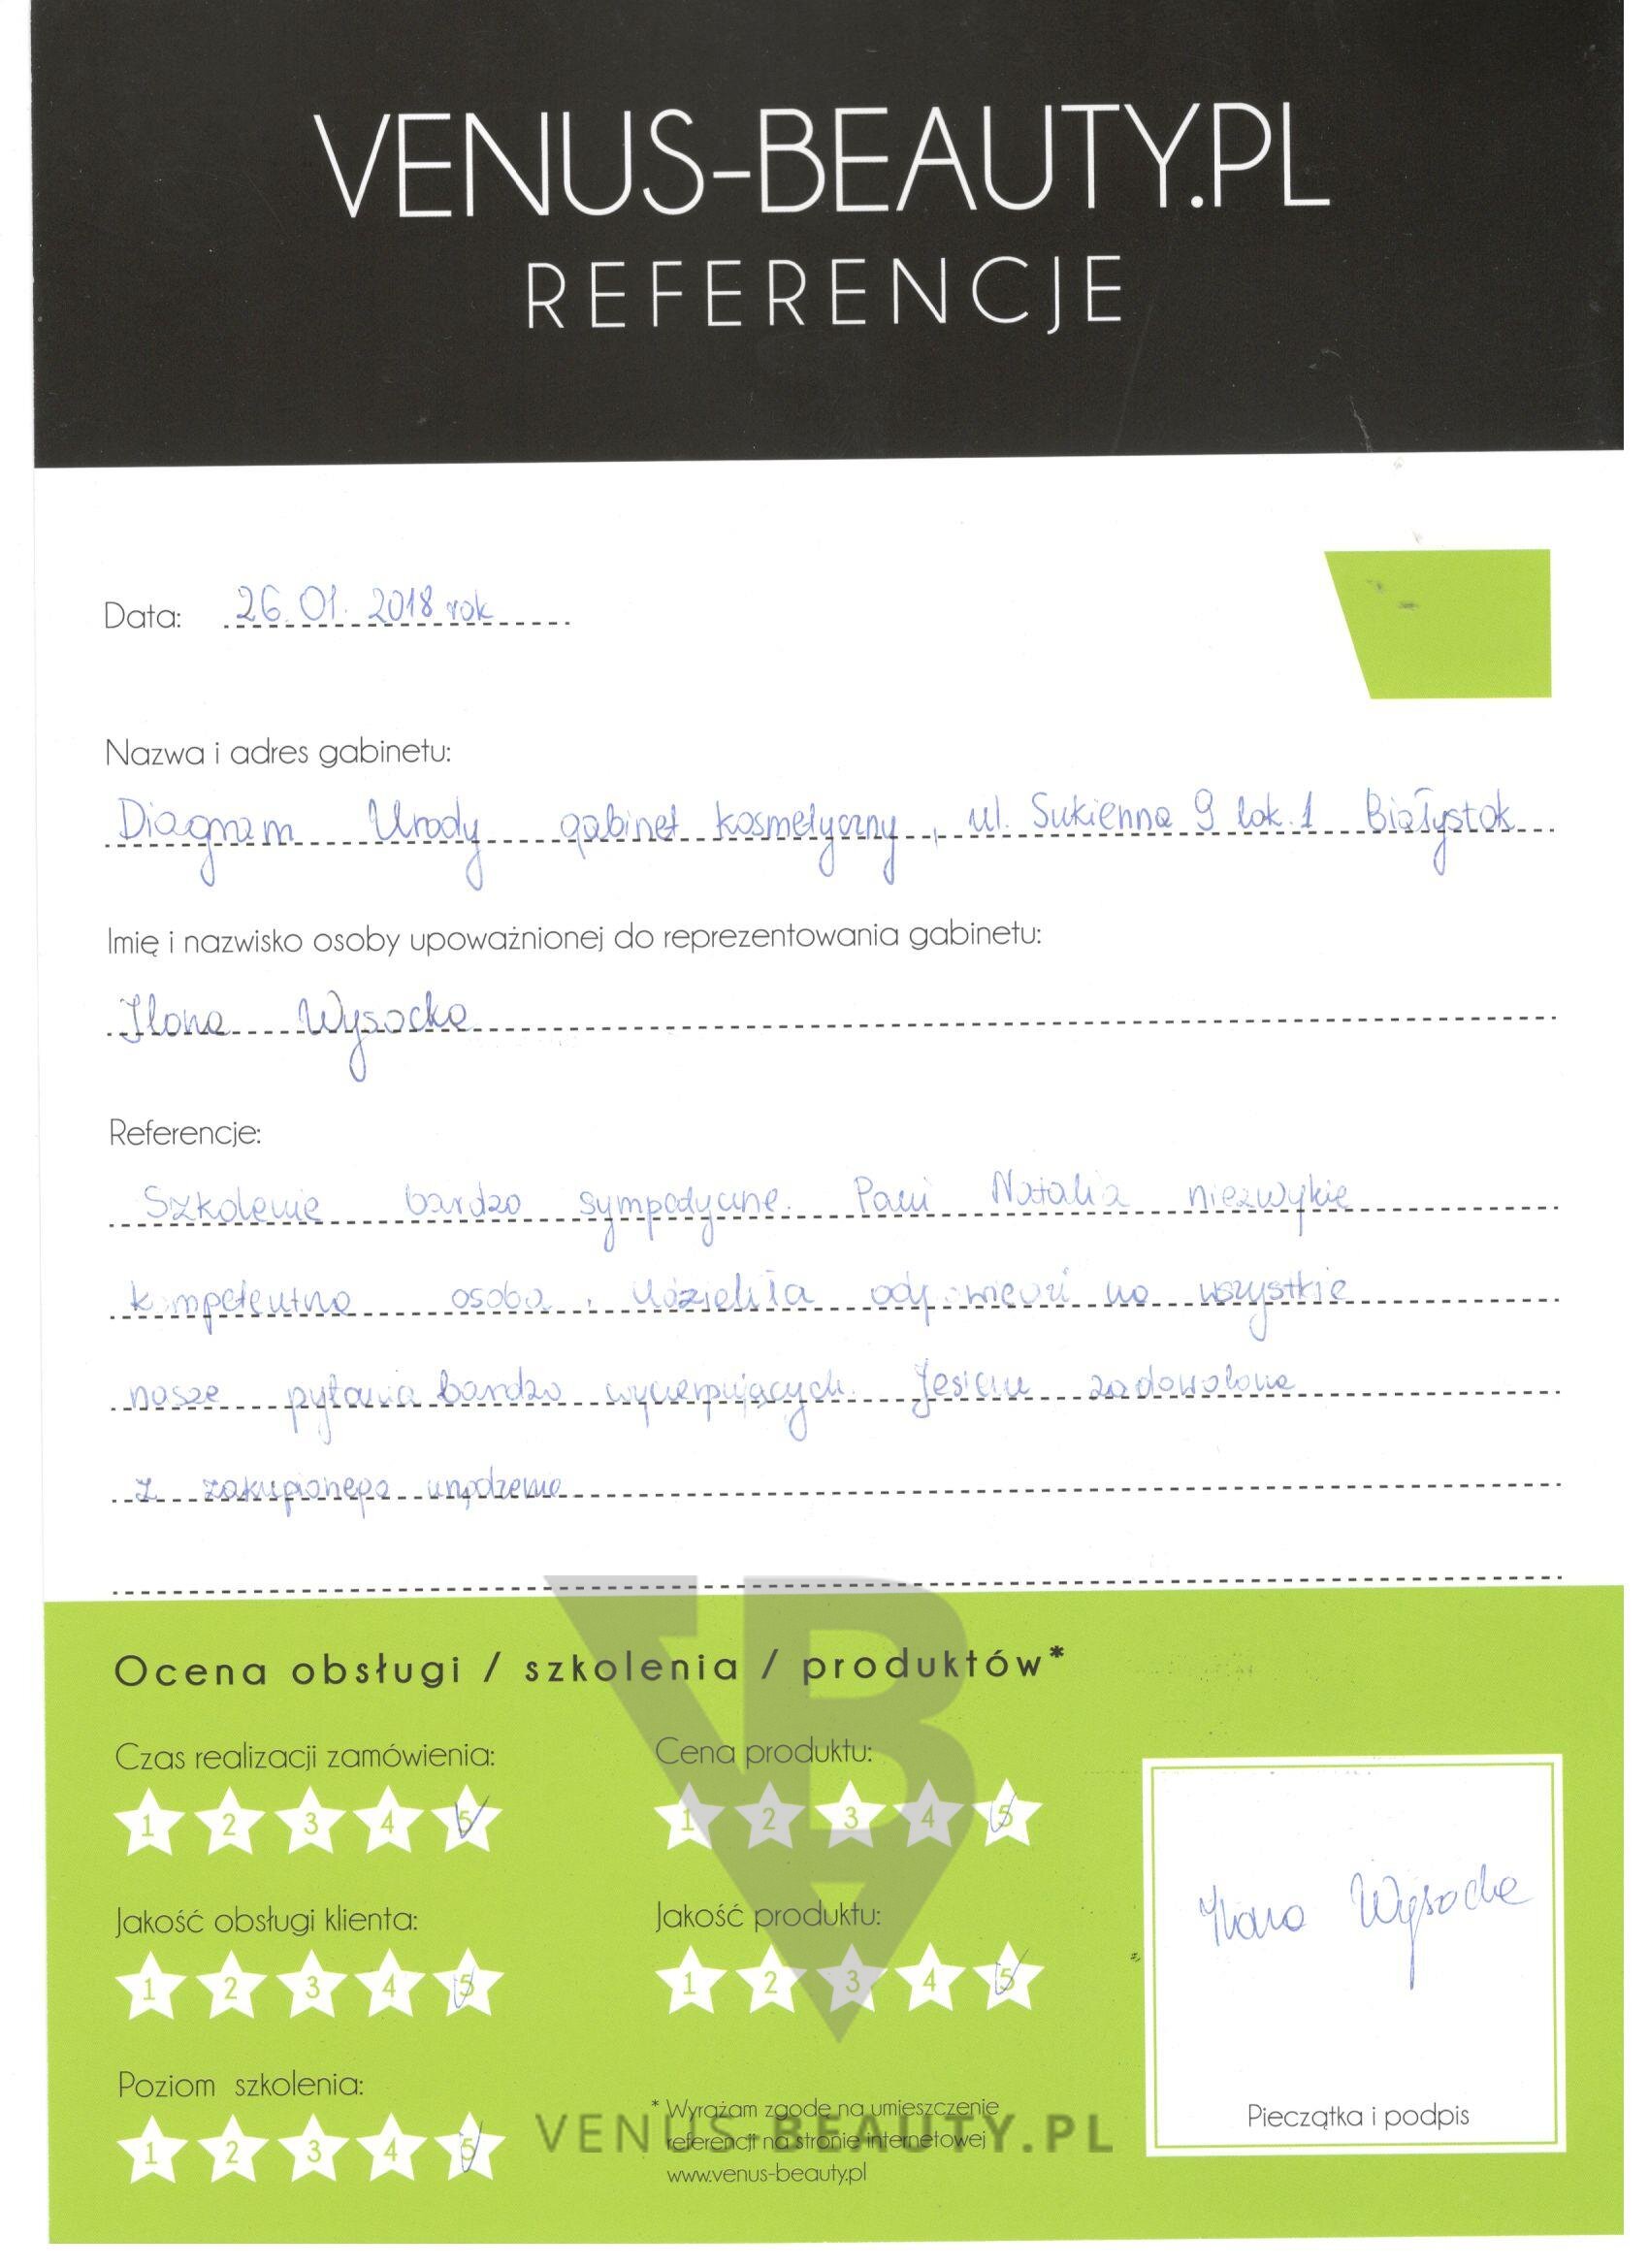 VENUS-BEAUTY.PL
REFERENCJE
Data: 26.01.2018 rok
Nazwa i adres gabinetu:
Diagram Urody gabinet kosmetyczny, ul. Sukienna 9 lok. 1 Białystok
Imię i nazwisko osoby upoważnionej do reprezentowania gabinetu:
Ilona Wysocka
Referencje:
Szkolenie bardzo sympatyczne. Pani Natalia niezwykle
kompetentna osoba. Udzieliła odpowiedzi na wszystkie
nasze pytania bardzo wyczerpujących. Jestem zadowolona
z zakupionego urządzenia
Ocena obsługi / szkolenia / produktów*
Czas realizacji zamówienia: Cena produktu:
1 2 3 4 5 1 2 3 4 5
Jakość obsługi klienta: Jakość produktu:
1 2 3 4 5 1 2 3 4 5
Ilona Wysocka
Poziom szkolenia:
1 2 3 4 5
* Wyrażam zgodę na umieszczenie
referencji na stronie internetowej
www.venus-beauty.pl
Pieczątka i podpis
VENUS-BEAUTY.PL